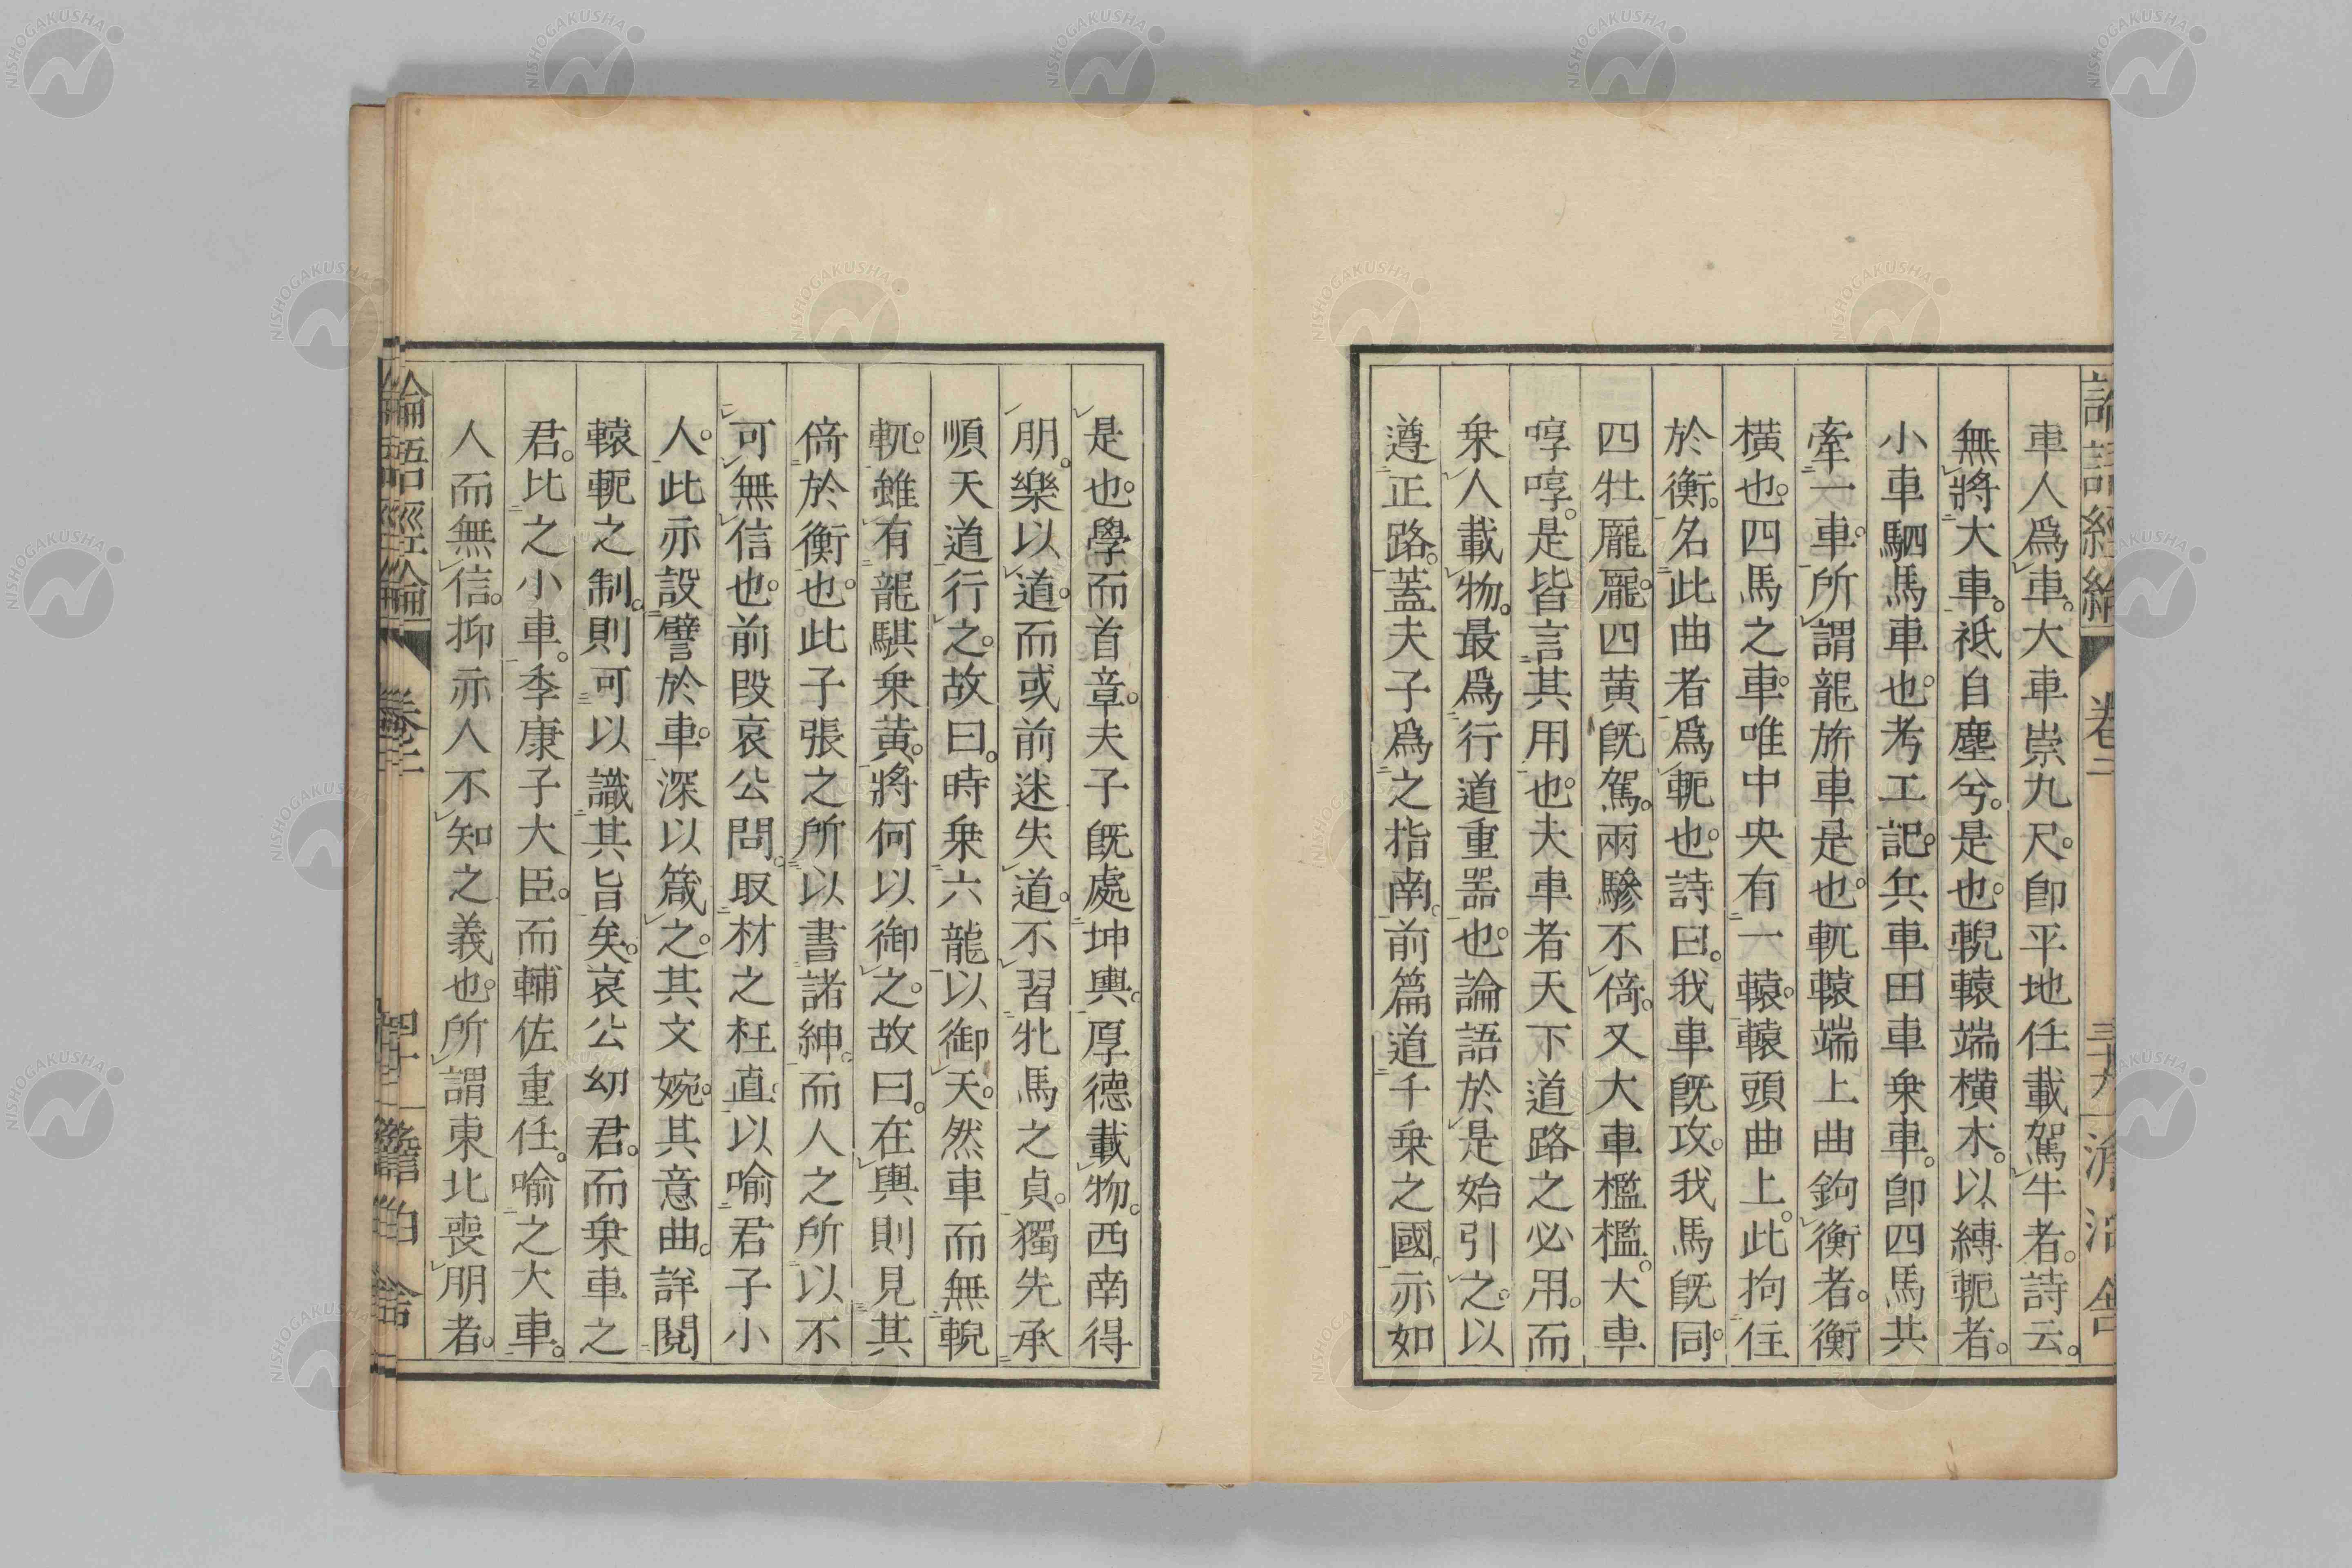 車人爲車。大車崇九尺。卽平地任載駕牛者。詩云。
無將大車。祇自塵兮。是也。輗轅端橫木。以縛軛者。
小車駟馬車也。考工記。兵車田車乗車。卽四馬共
牽一車。所謂龍旂車是也。軏轅端上曲鉤衡者。衡
橫也。四馬之車。唯中央有一轅。轅頭曲上。此拘住
於衡。名此曲者爲軛也。詩曰。我車旣攻。我馬旣同。
四牡龐龐。四黄旣駕。兩驂不倚。又大車檻檻。大車
啍啍。是皆言其用也。夫車者天下道路之必用。而
乗人載物。最爲行道重器也。論語於是始引之。以
遵正路。蓋夫子爲之指南。前篇道千乗之國。亦如
是也。學而首章。夫子旣處坤輿。厚德載物。西南得
朋。樂以道。而或前迷失道。不習牝馬之貞。獨先承
順天道行之。故曰。時乗六龍以御天。然車而無輗
軏。雖有龍騏乗黄。將何以御之。故曰。在輿則見其
倚於衡也。此子張之所以書諸紳。而人之所以不
可無信也。前段哀公問。取材之枉直。以喻君子小
人。此亦設譬於車。深以箴之。其文婉。其意曲。詳閱
轅軛之制。則可以識其旨矣。哀公幼君。而乗車之
君。比之小車。季康子大臣。而輔佐重任。喻之大車。
人而無信。抑亦人不知之義也。所謂東北喪朋者。
論語經綸
卷二
四十